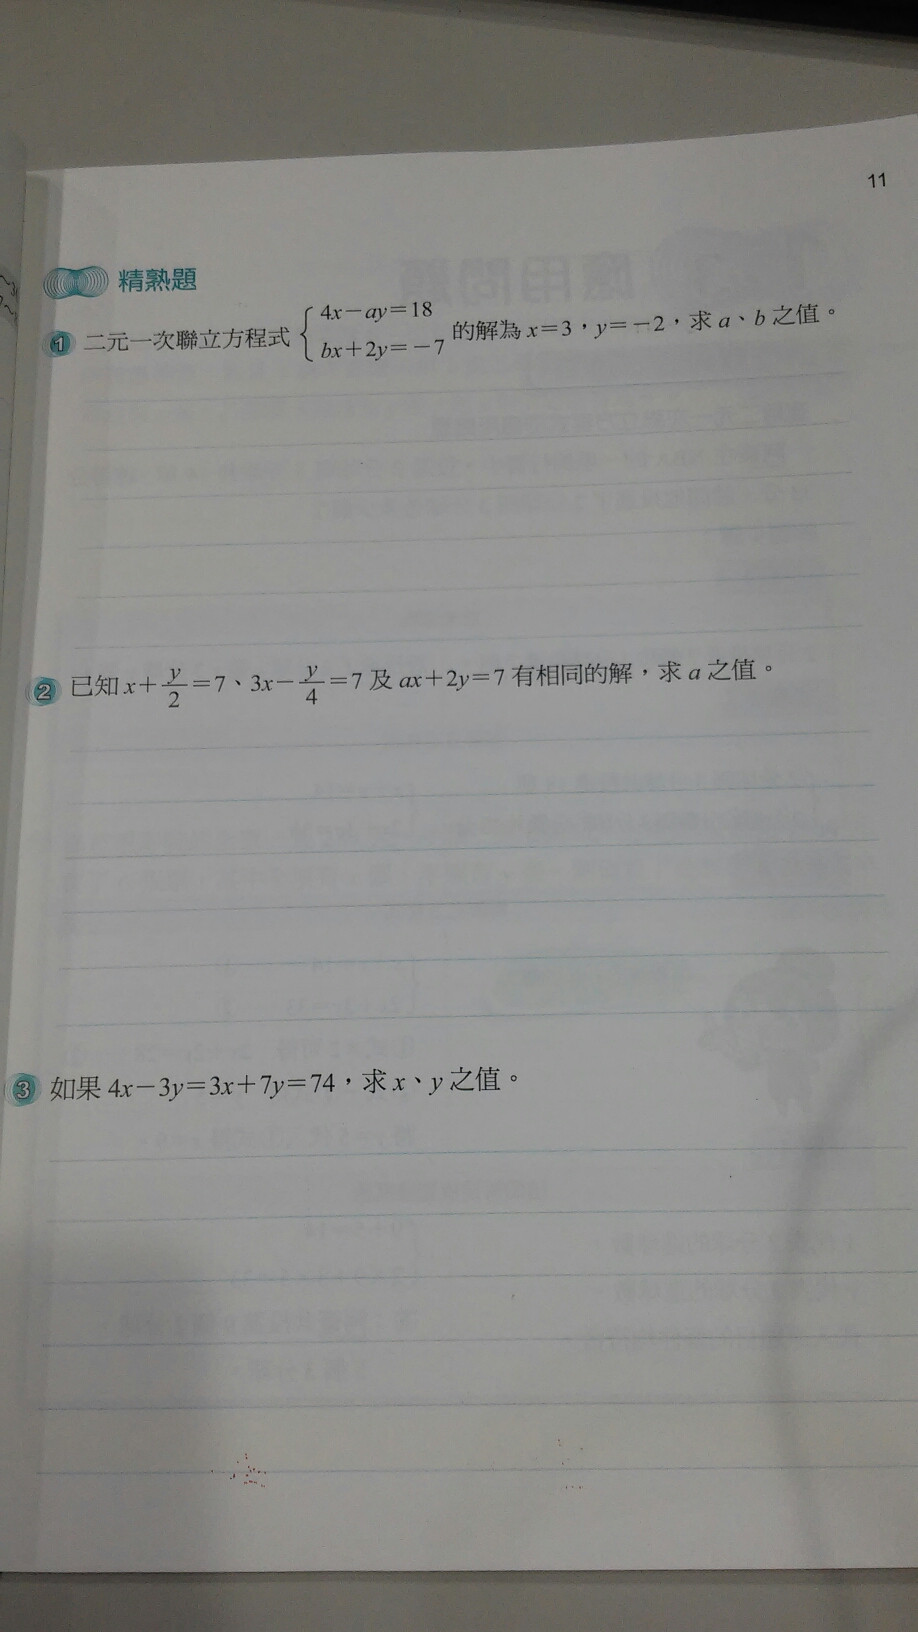 11
精熟題
1 二元一次聯立方程式 { 4x－ay＝18 的解為 x＝3，y＝－2，求 a、b 之值。
bx＋2y＝－7
2 已知 x＋y/2＝7、3x－y/4＝7 及 ax＋2y＝7 有相同的解，求 a 之值。
3 如果 4x－3y＝3x＋7y＝74，求 x、y 之值。